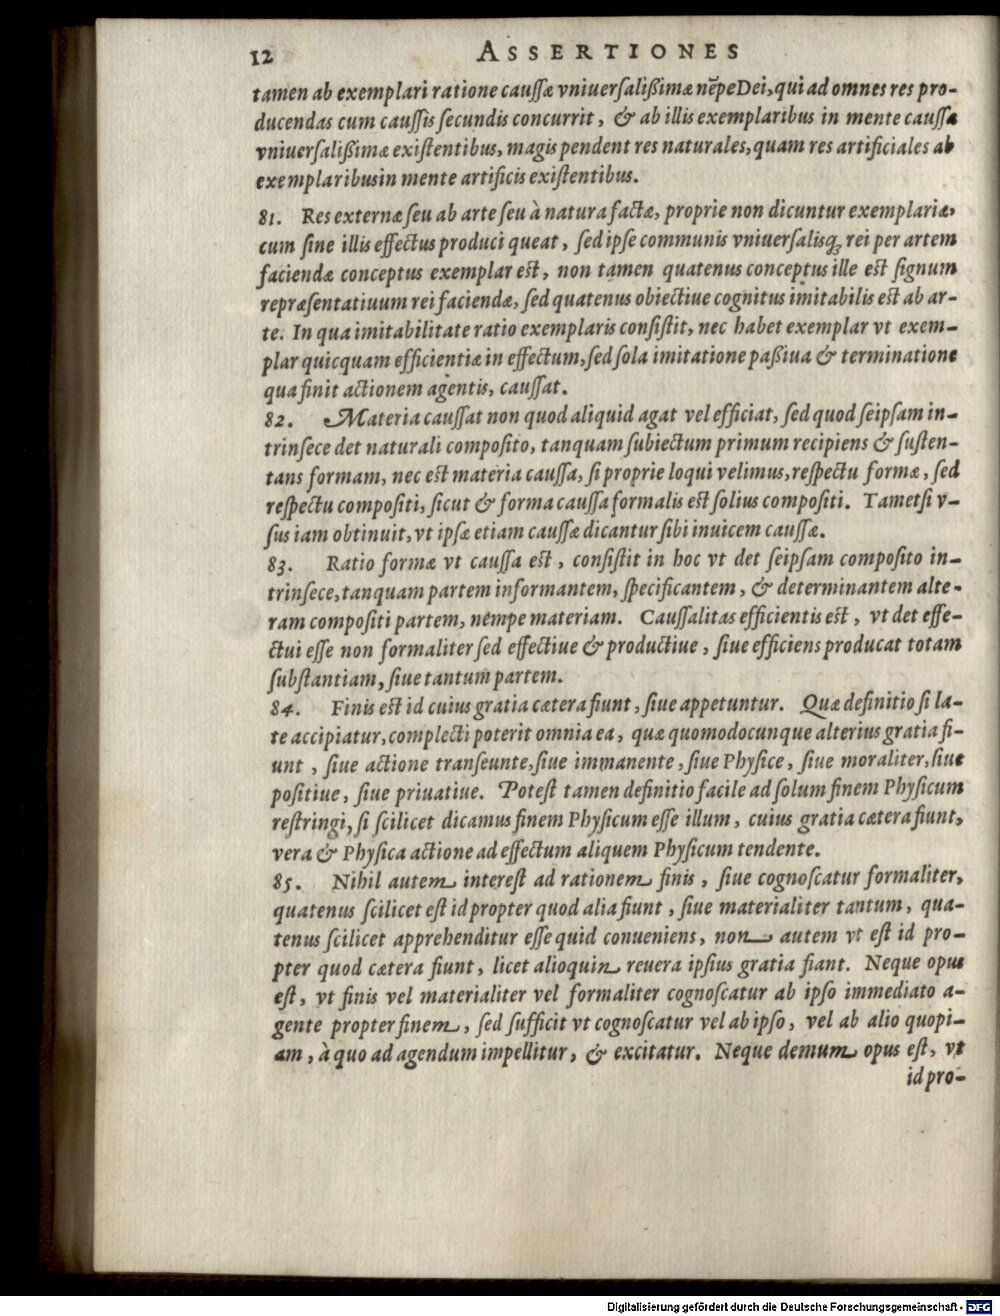 12 ASSERTIONES
tamen ab exemplari ratione cauſſæ vniuerſalißimæ nẽpe Dei, qui ad omnes res pro-
ducendas cum cauſſis ſecundis concurrit, & ab illis exemplaribus in mente cauſſæ
vniuerſalißimæ exiſtentibus, magis pendent res naturales, quam res artificiales ab
exemplaribusin mente artificis exiſtentibus.
81. Res externæ ſeu ab arte ſeu à natura factæ, proprie non dicuntur exemplaria,
cum ſine illis effectus produci queat, ſed ipſe communis vniuerſalisq́; rei per artem
faciendæ conceptus exemplar eſt, non tamen quatenus conceptus ille eſt ſignum
repræſentatiuum rei faciendæ, ſed quatenus obiectiue cognitus imitabilis eſt ab ar-
te. In qua imitabilitate ratio exemplaris conſiſtit, nec habet exemplar vt exem-
plar quicquam efficientiæ in effectum, ſed ſola imitatione paßiua & terminatione
qua finit actionem agentis, cauſſat.
82. Materia cauſſat non quod aliquid agat vel efficiat, ſed quod ſeipſam in-
trinſece det naturali compoſito, tanquam ſubiectum primum recipiens & ſuſten-
tans formam, nec eſt materia cauſſa, ſi proprie loqui velimus, reſpectu formæ, ſed
reſpectu compoſiti, ſicut & forma cauſſa formalis eſt ſolius compoſiti. Tametſi v-
ſus iam obtinuit, vt ipſæ etiam cauſſæ dicantur ſibi inuicem cauſſæ.
83. Ratio formæ vt cauſſa eſt, conſiſtit in hoc vt det ſeipſam compoſito in-
trinſece, tanquam partem informantem, ſpecificantem, & determinantem alte-
ram compoſiti partem, nempe materiam. Cauſſalitas efficientis eſt, vt det effe-
ctui eſſe non formaliter ſed effectiue & productiue, ſiue efficiens producat totam
ſubſtantiam, ſiue tantum partem.
84. Finis eſt id cuius gratia cætera fiunt, ſiue appetuntur. Quæ definitio ſi la-
te accipiatur, complecti poterit omnia ea, quæ quomodocunque alterius gratia fi-
unt, ſiue actione tranſeunte, ſiue immanente, ſiue Phyſice, ſiue moraliter, ſiue
poſitiue, ſiue priuatiue. Poteſt tamen definitio facile ad ſolum finem Phyſicum
reſtringi, ſi ſcilicet dicamus finem Phyſicum eſſe illum, cuius gratia cætera fiunt,
vera & Phyſica actione ad effectum aliquem Phyſicum tendente.
85. Nihil autem intereſt ad rationem finis, ſiue cognoſcatur formaliter,
quatenus ſcilicet eſt id propter quod alia fiunt, ſiue materialiter tantum, qua-
tenus ſcilicet apprehenditur eſſe quid conueniens, non autem vt eſt id pro-
pter quod cætera fiunt, licet alioquin reuera ipſius gratia fiant. Neque opus
eſt, vt finis vel materialiter vel formaliter cognoſcatur ab ipſo immediato a-
gente propter finem, ſed ſufficit vt cognoſcatur vel ab ipſo, vel ab alio quopi-
am, à quo ad agendum impellitur, & excitatur. Neque demum opus eſt, vt
id pro-
Digitalisierung gefördert durch die Deutsche Forschungsgemeinschaft - DFG